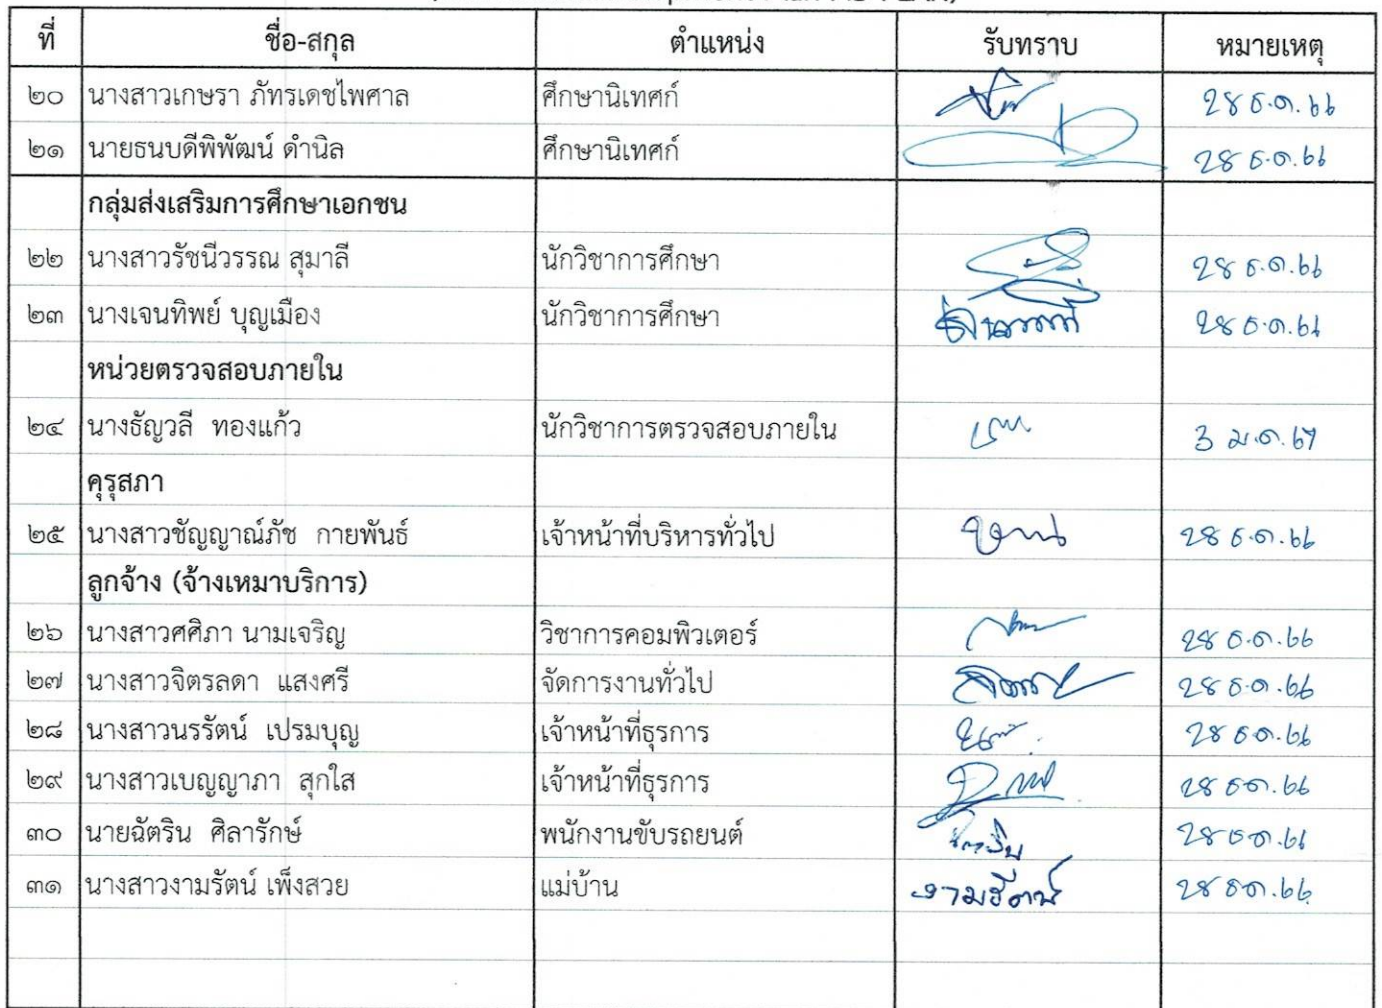 ที่ ชื่อ-สกุล ตำแหน่ง รับทราบ หมายเหตุ
๒๐ นางสาวเกษรา ภัทรเดชไพศาล ศึกษานิเทศก์ 28 ธ.ค. 66
๒๑ นายธนบดีพิพัฒน์ ดำนิล ศึกษานิเทศก์ 28 ธ.ค. 66
กลุ่มส่งเสริมการศึกษาเอกชน
๒๒ นางสาวรัชนีวรรณ สุมาลี นักวิชาการศึกษา 28 ธ.ค. 66
๒๓ นางเจนทิพย์ บุญเมือง นักวิชาการศึกษา 28 ธ.ค. 66
หน่วยตรวจสอบภายใน
๒๔ นางธัญวลี ทองแก้ว นักวิชาการตรวจสอบภายใน 3 ม.ค. 67
คุรุสภา
๒๕ นางสาวชัญญาณ์ภัช กายพันธ์ เจ้าหน้าที่บริหารทั่วไป 28 ธ.ค. 66
ลูกจ้าง (จ้างเหมาบริการ)
๒๖ นางสาวศศิภา นามเจริญ วิชาการคอมพิวเตอร์ 28 ธ.ค. 66
๒๗ นางสาวจิตรลดา แสงศรี จัดการงานทั่วไป 28 ธ.ค. 66
๒๘ นางสาวนรรัตน์ เปรมบุญ เจ้าหน้าที่ธุรการ 28 ธ.ค. 66
๒๙ นางสาวเบญญาภา สุกใส เจ้าหน้าที่ธุรการ 28 ธ.ค. 66
๓๐ นายฉัตริน ศิลารักษ์ พนักงานขับรถยนต์ 28 ธ.ค. 66
๓๑ นางสาวงามรัตน์ เพ็งสวย แม่บ้าน งามรัตน์ 28 ธ.ค. 66